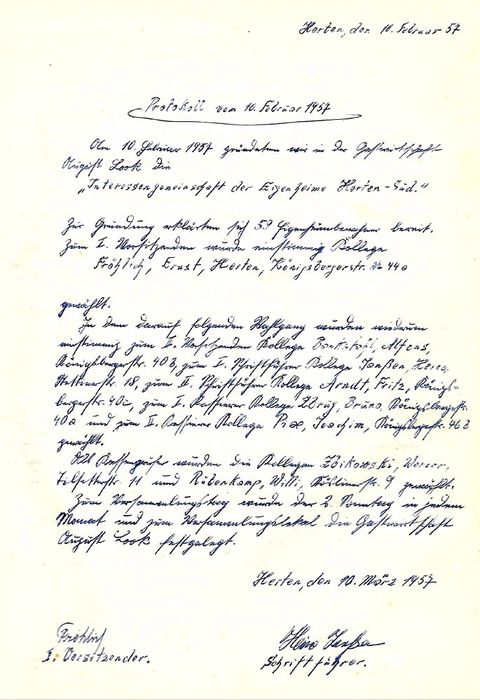 Herten, den 10. Februar 57
Protokoll vom 10. Februar 1957
Am 10. Februar 1957 gründeten wir in der Gastwirtschaft
August Look die
„Interessengemeinschaft der Eigenheime Herten-Süd."
Zur Gründung erklärten sich 59 Eigenheimbewohner bereit.
Zum I. Vorsitzenden wurde einstimmig Kollege
Fröhlich, Ernst, Herten, Königsbergerstr. 44a
gewählt.
In dem darauf folgenden Wahlgang wurden wiederum
einstimmig zum II. Vorsitzenden Kollege Alfons,
Königsbergerstr. 40b, zum I. Schriftführer Kollege Janßen,
Stettinerstr. 18, zum II. Schriftführer Kollege Arndt, Fritz, Königs-
bergerstr. 40c, zum I. Kassierer Kollege Bruno, Königsbergerstr.
40a und zum II. Kassierer Kollege Joachim, Königsbergerstr. 46b
gewählt.
Als Kassenprüfer wurden die Kollegen Zoikowski, Werner,
Tilsiterstr. 11 und Rübenkamp, Willi, 9 gewählt.
Zum Versammlungstag wurde der 2. Sonntag in jedem
Monat und zum Versammlungslokal die Gastwirtschaft
August Look festgelegt.
Herten, den 10. März 1957
Fröhlich
I. Vorsitzender.
Janßen
Schriftführer.